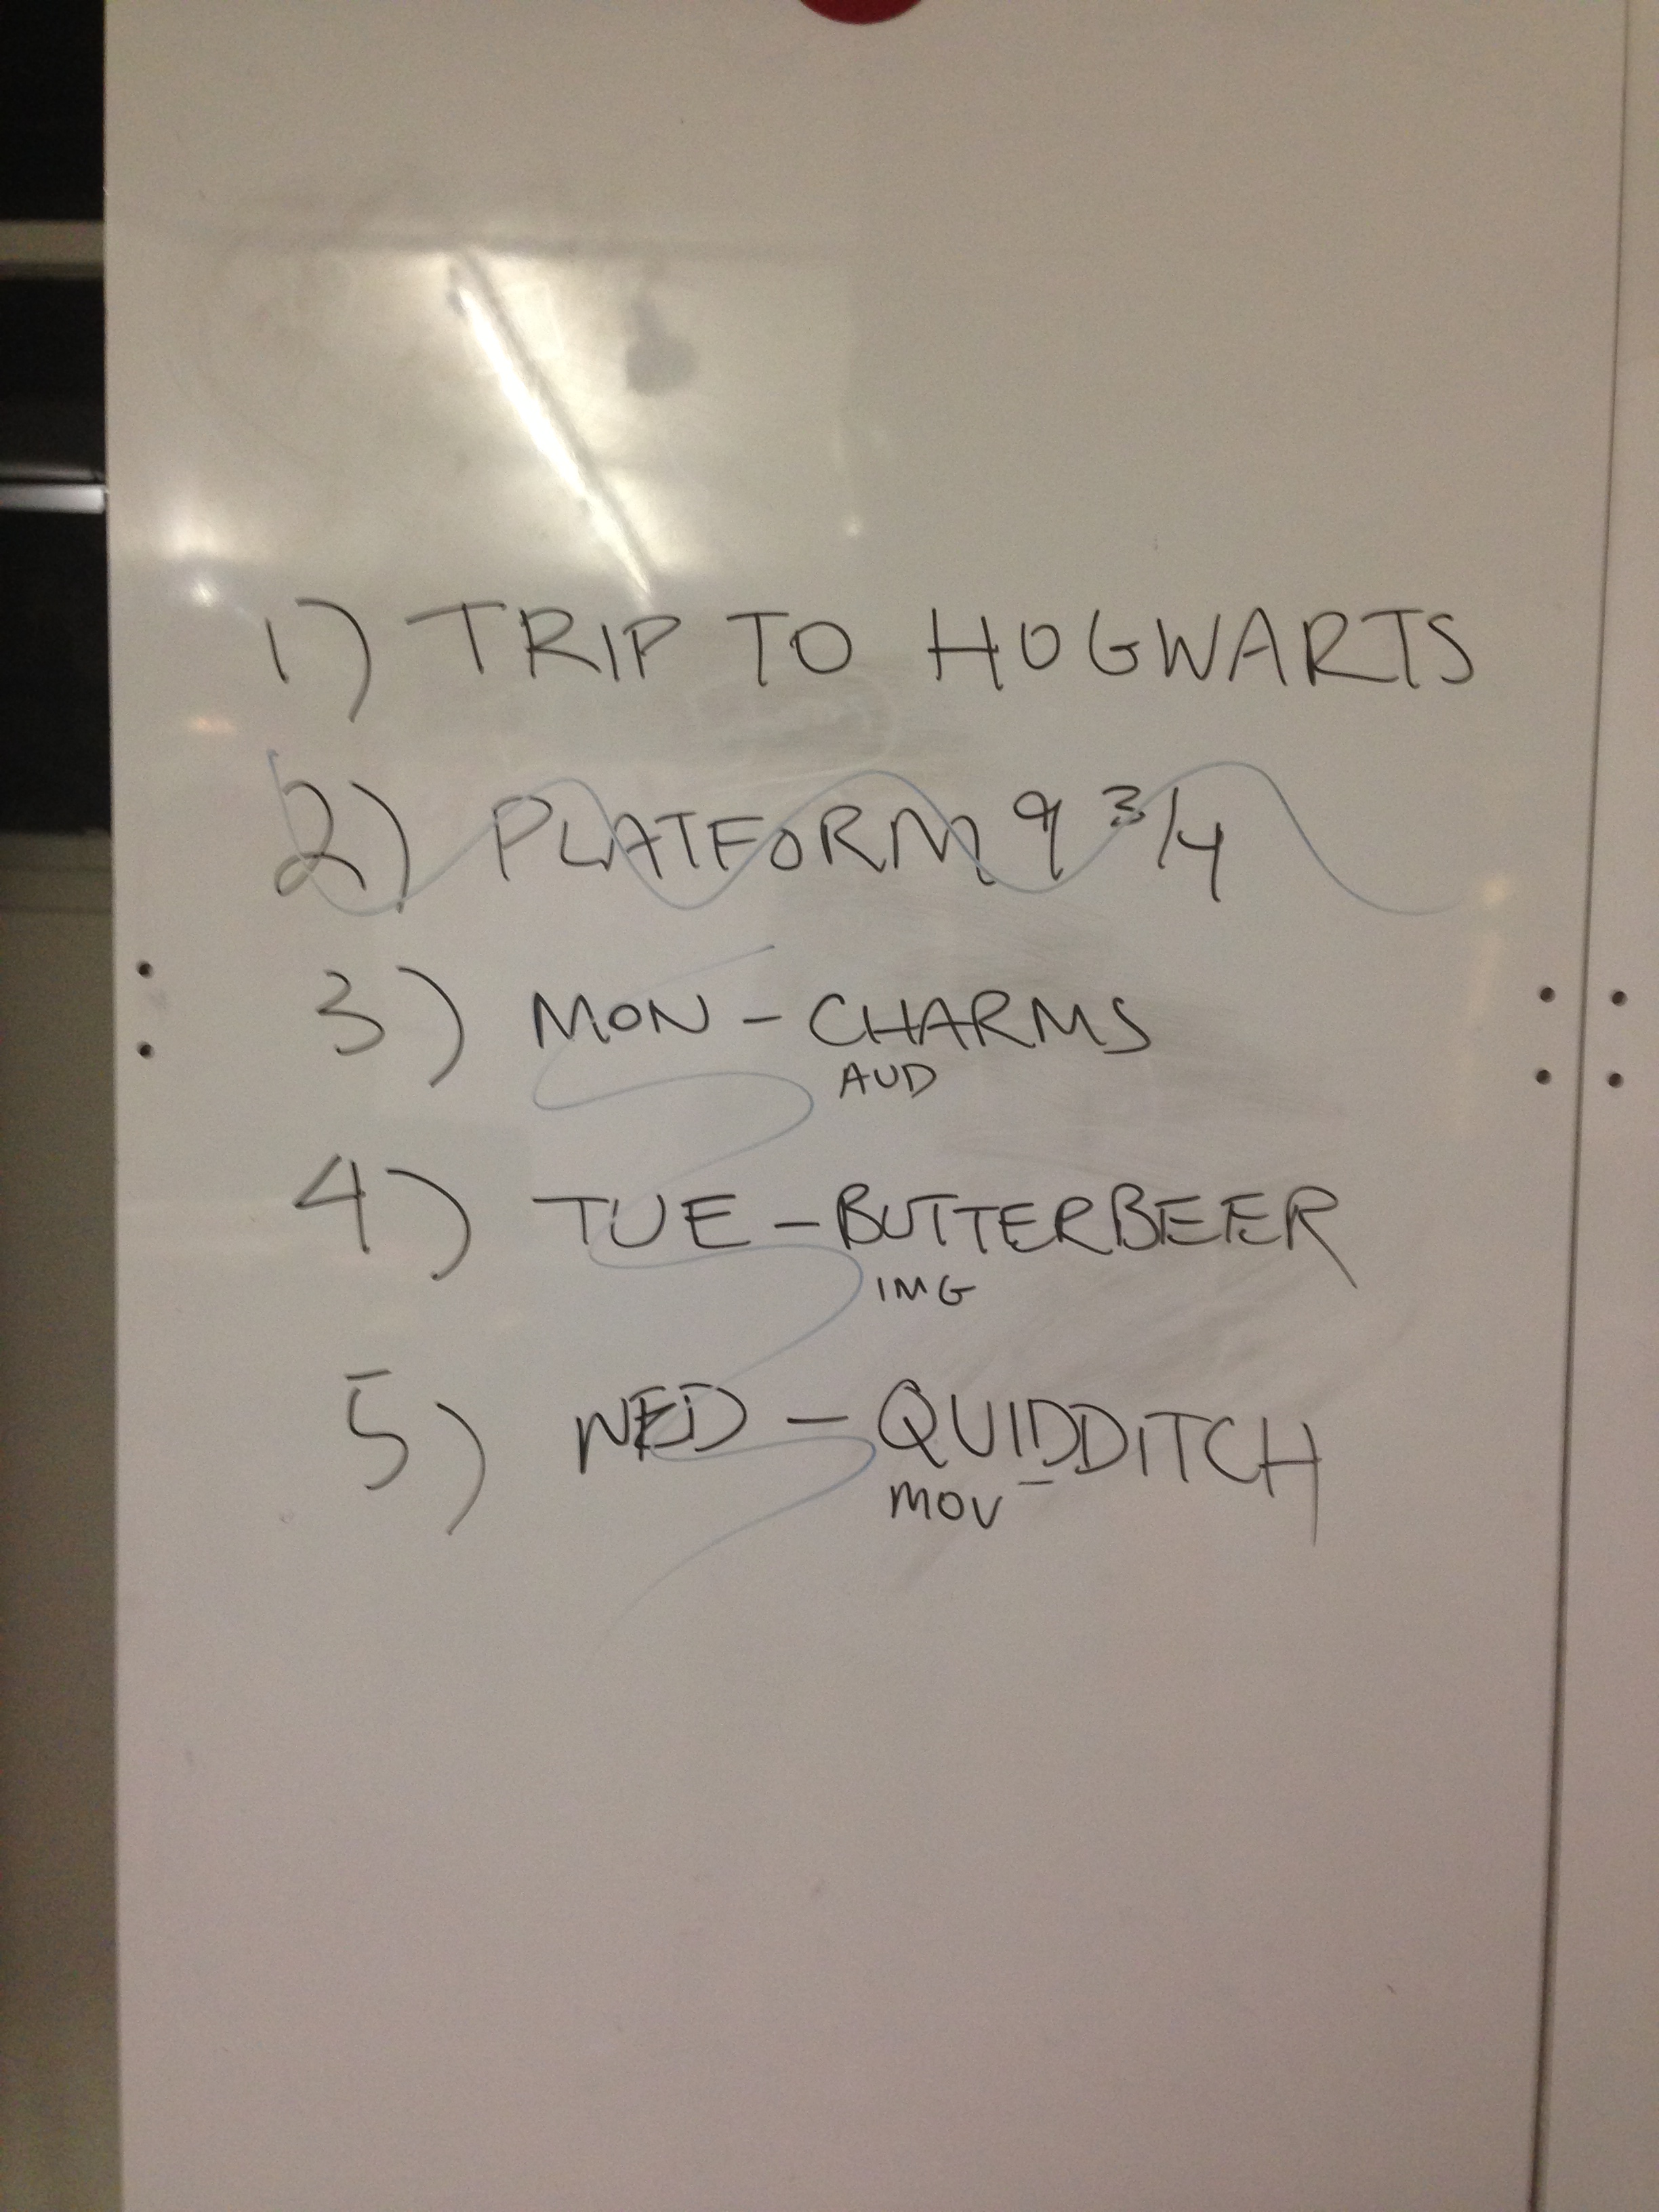 1) TRIP TO HOGWARTS
2) PLATFORM 9 3/4
3) MON - CHARMS
AUD
4) TUE - BUTTERBEER
IMG
5) WED - QUIDDITCH
MOV